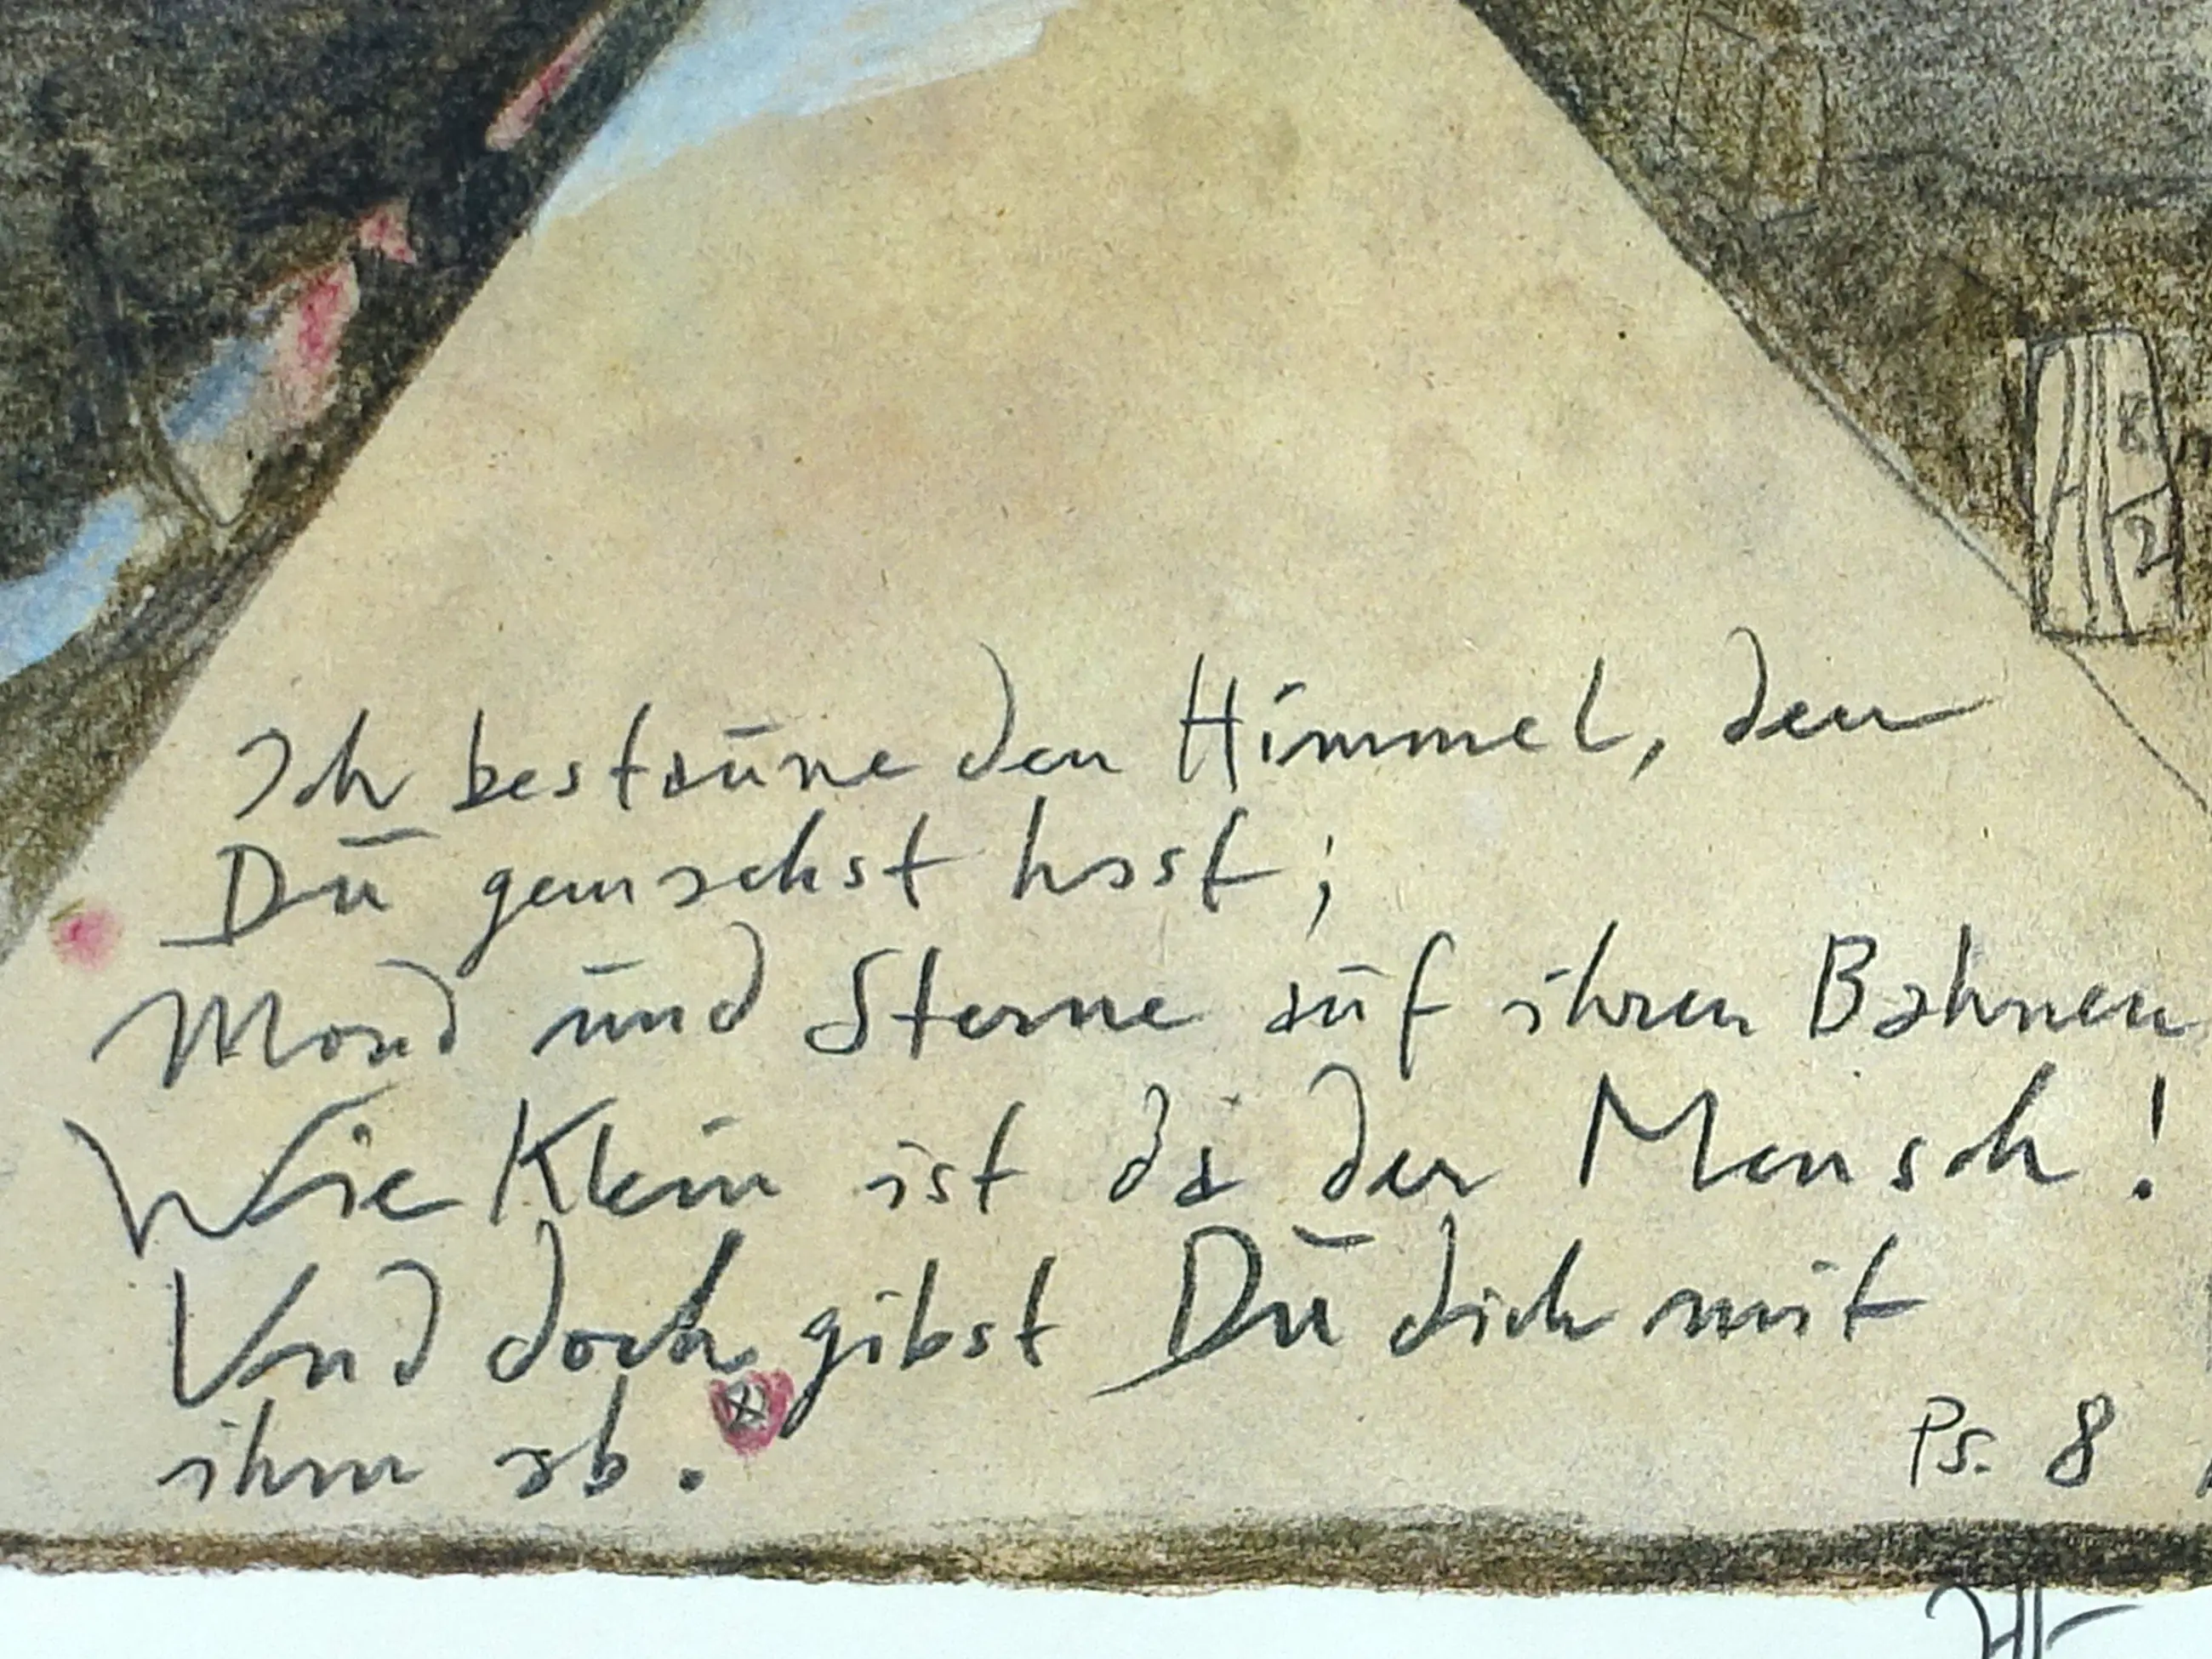 Ich bestaune den Himmel, den
Du gemachst hast;
Mond und Sterne auf ihren Bahnen
Wie Klein ist da der Mensch!
Und doch gibst Du dich mit
ihm ab.
Ps. 8